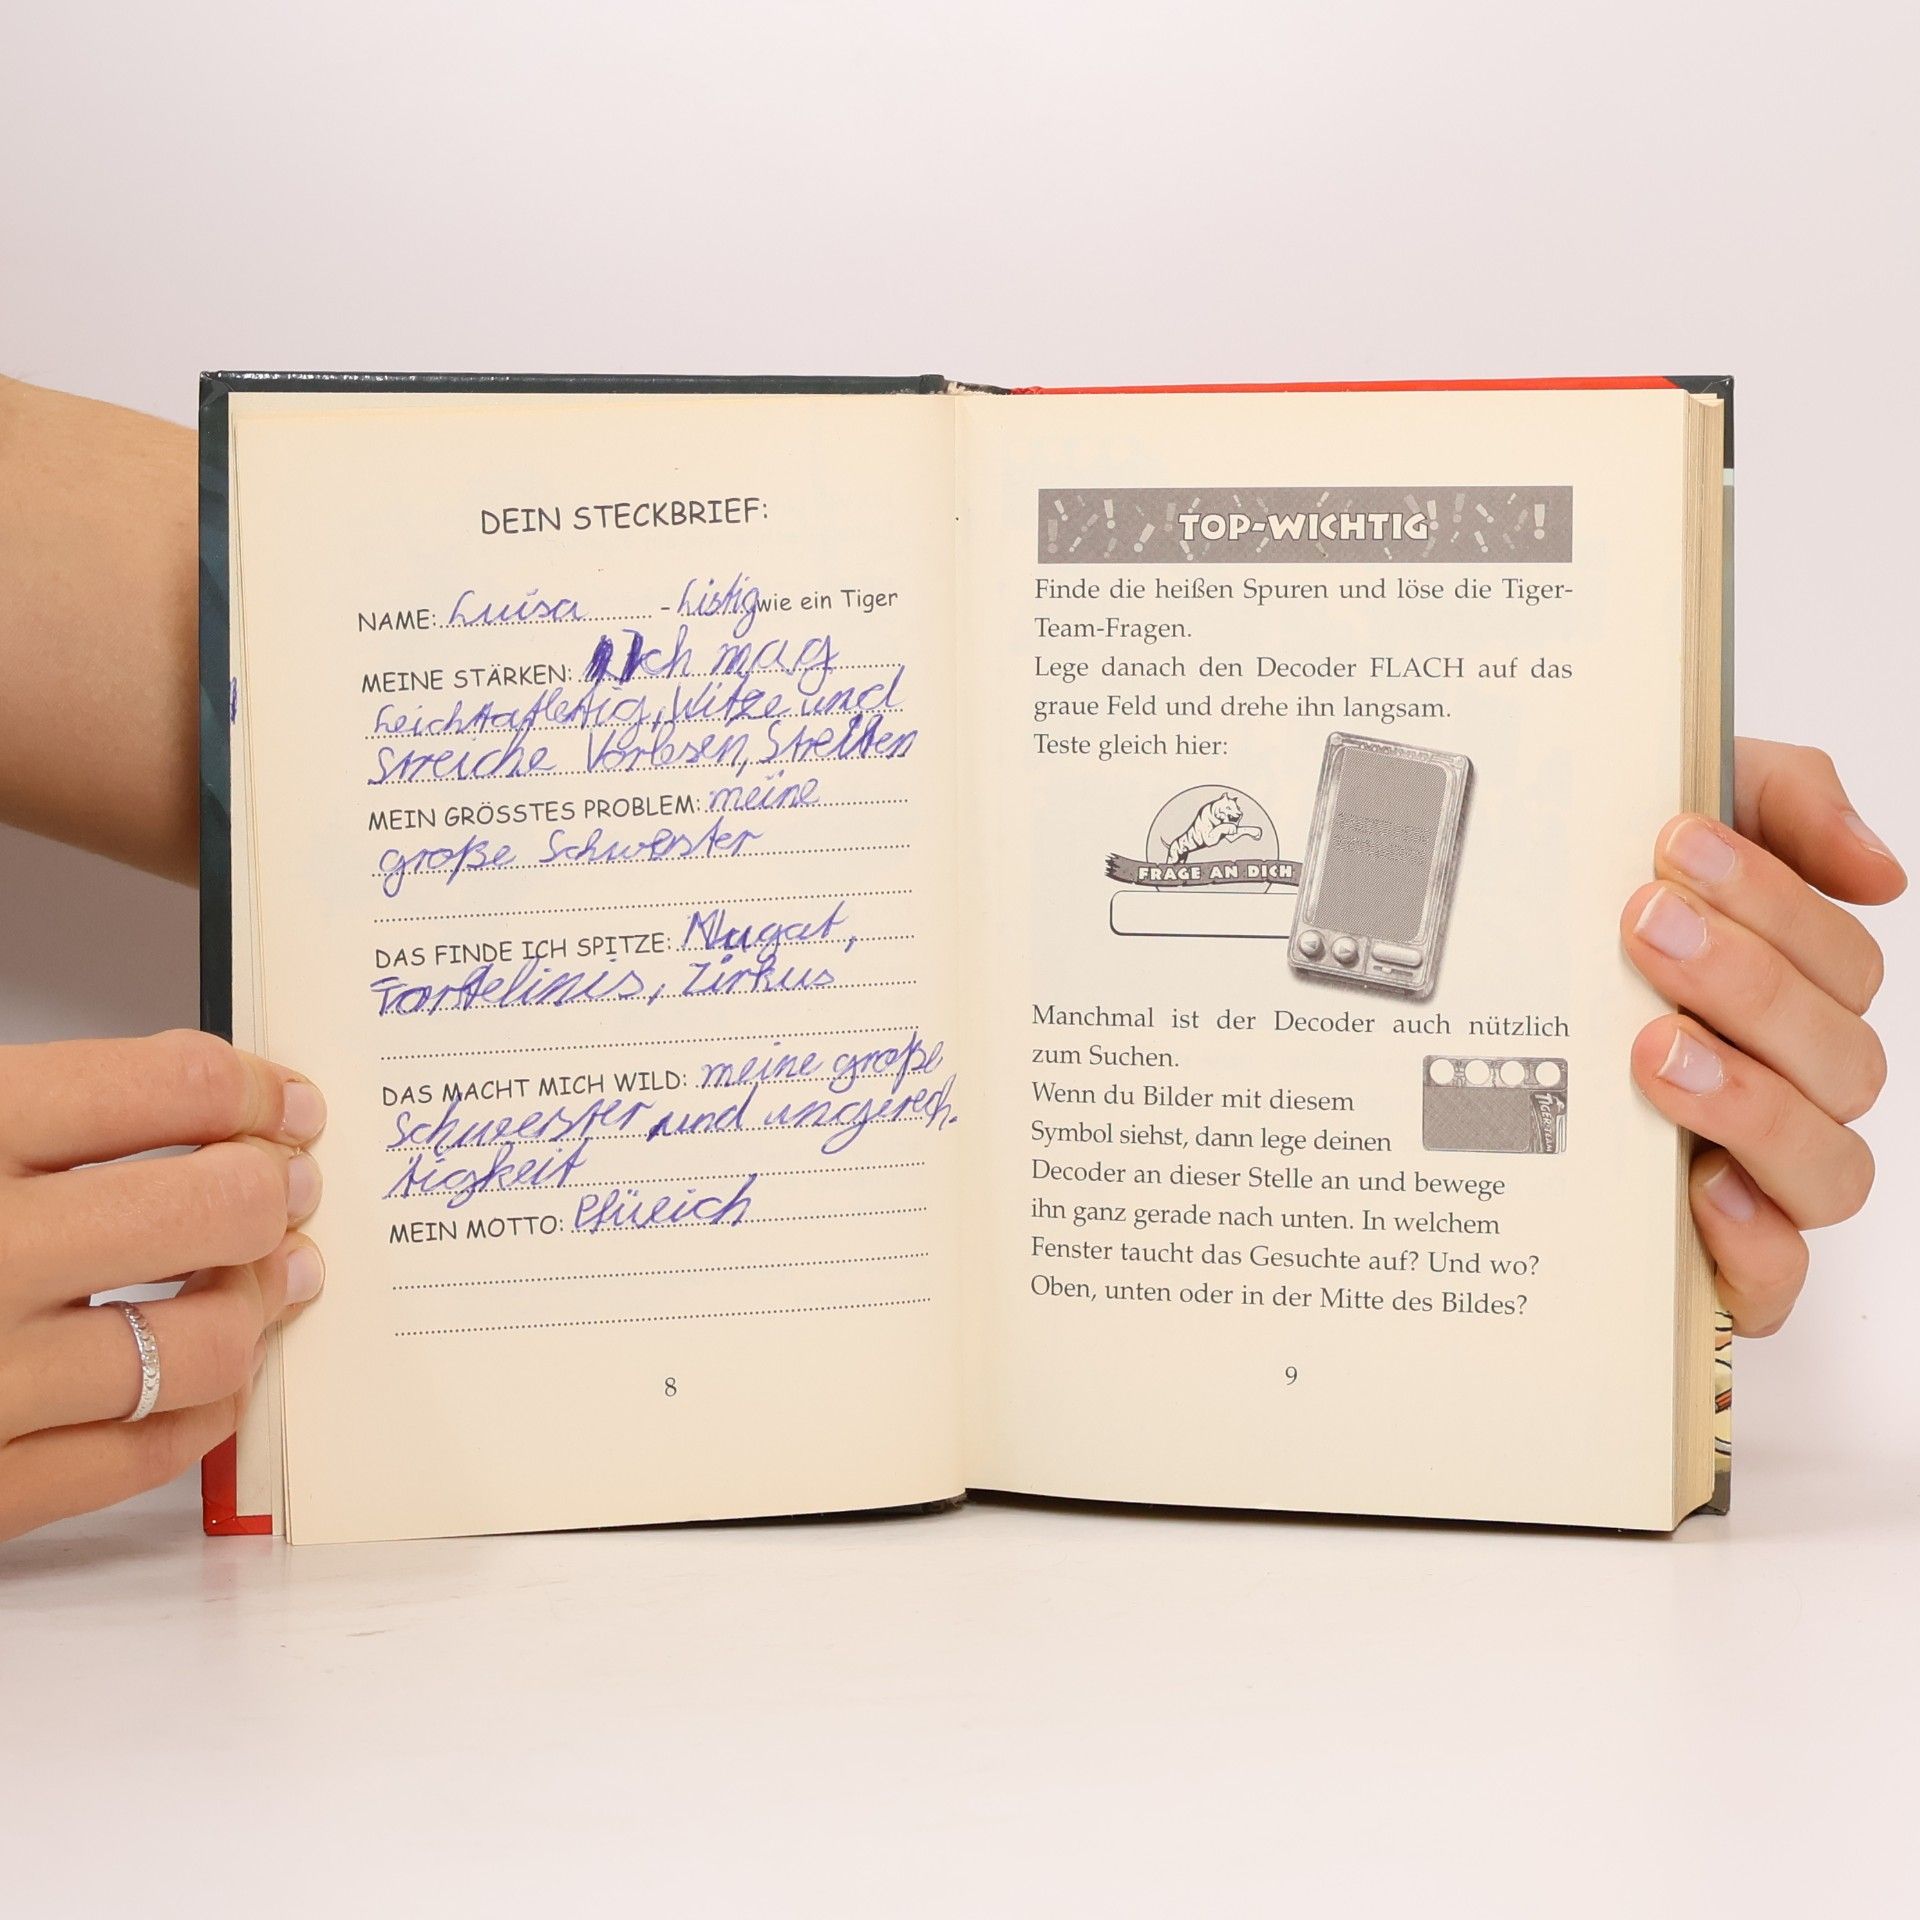 DEIN STECKBRIEF:
NAME: Luisa - Listig wie ein Tiger
MEINE STÄRKEN: Ich mag
Leichtathletig, Witze und
Streiche Vorlesen, Streiten
MEIN GRÖSSTES PROBLEM: meine
große Schwester
DAS FINDE ICH SPITZE: Nugat,
Tortelinis, Zirkus
DAS MACHT MICH WILD: meine große
Schwester und ungerech-
tigkeit
MEIN MOTTO:
8
TOP-WICHTIG
Finde die heißen Spuren und löse die Tiger-
Team-Fragen.
Lege danach den Decoder FLACH auf das
graue Feld und drehe ihn langsam.
Teste gleich hier:
FRAGE AN DICH
Manchmal ist der Decoder auch nützlich
zum Suchen.
Wenn du Bilder mit diesem
Symbol siehst, dann lege deinen
TIGER-TEAM
Decoder an dieser Stelle an und bewege
ihn ganz gerade nach unten. In welchem
Fenster taucht das Gesuchte auf? Und wo?
Oben, unten oder in der Mitte des Bildes?
9